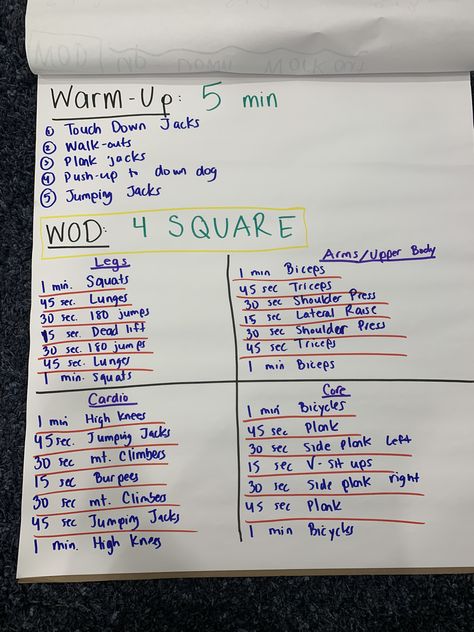 WOD NO-DUMB WORKOUT
Warm-Up: 5 min
① Touch Down Jacks
② Walk-outs
③ Plank jacks
④ Push-up to down dog
⑤ Jumping Jacks
WOD: 4 SQUARE
Legs
1 min. Squats
45 sec. Lunges
30 sec. 180 jumps
15 ser. Dead lift
30 sec. 180 jumps
45 sec. Lunges
1 min. Squats
Arms/Upper Body
1 min Biceps
45 sec Triceps
30 sec Shoulder Press
15 sec Lateral Raise
30 sec Shoulder Press
45 sec Triceps
1 min Biceps
Cardio
1 min High Knees
45 sec. Jumping Jacks
30 sec mt. Climbers
15 sec Burpees
30 sec mt. Climbers
45 sec Jumping Jacks
1 min. High Knees
Core
1 min Bicycles
45 sec Plank
30 sec Side plank left
15 sec V-sit ups
30 sec Side plank right
45 sec Plank
1 min Bicycles